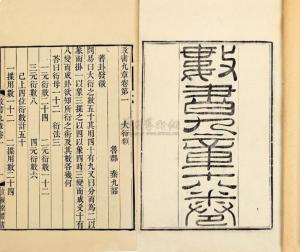 數書九章十八卷
數書九章卷第一 大衍類
魯郡 秦九韶
蓍卦發微
問易曰大衍之數五十其用四十有九又曰分而為二以
象兩掛一以象三揲之以四以象四時三變而成爻十有
八變而成卦欲知所衍之術及其數各幾何
答曰衍母一十二 衍法三
一元衍數二十四 二元衍數一十二
三元衍數八 四元衍數六
已上四位衍數計五十
一揲用數一十二 二揲用數二十四